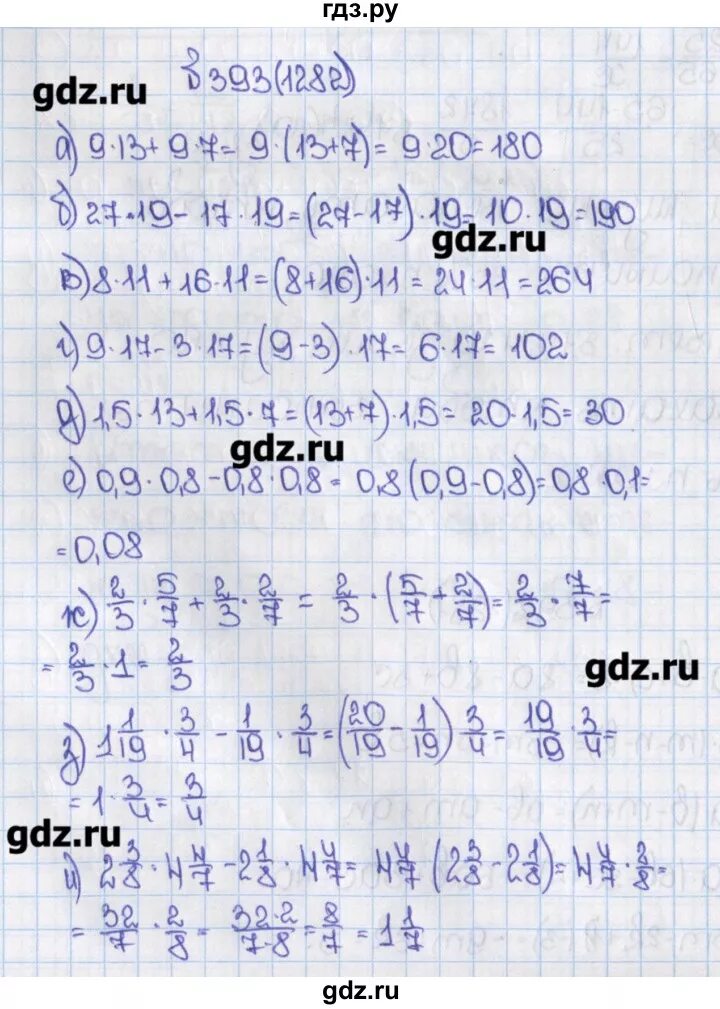 гдз.ру
393(1282)
gdz.ru
а) 9·13+9·7= 9·(13+7)= 9·20=180
б) 27·19-17·19=(27-17)·19=10·19=190
gdz.ru
в) 8·11+16·11=(8+16)·11=24·11=264
г) 9·17-3·17=(9-3)·17=6·17=102
д) 1,5·13+1,5·7=(13+7)·1,5=20·1,5=30
gdz.ru
е) 0,9·0,8-0,8·0,8= 0,8(0,9-0,8)=0,8·0,1=
=0,08
ж) 2/3·5/7+2/3·2/7= 2/3·(5/7+2/7)=2/3·7/7=
=2/3·1=2/3
gdz.ru
з) 1 1/19·3/4-1/19·3/4=(20/19-1/19) 3/4=19/19·3/4=
=1·3/4=3/4
gdz.ru
и) 2 3/8·4 4/7-2 1/8·4 4/7=4 4/7(2 3/8-2 1/8)=4 4/7·2/8=
=32/7·2/8=32·2/7·8=8/7=1 1/7
gdz.ru